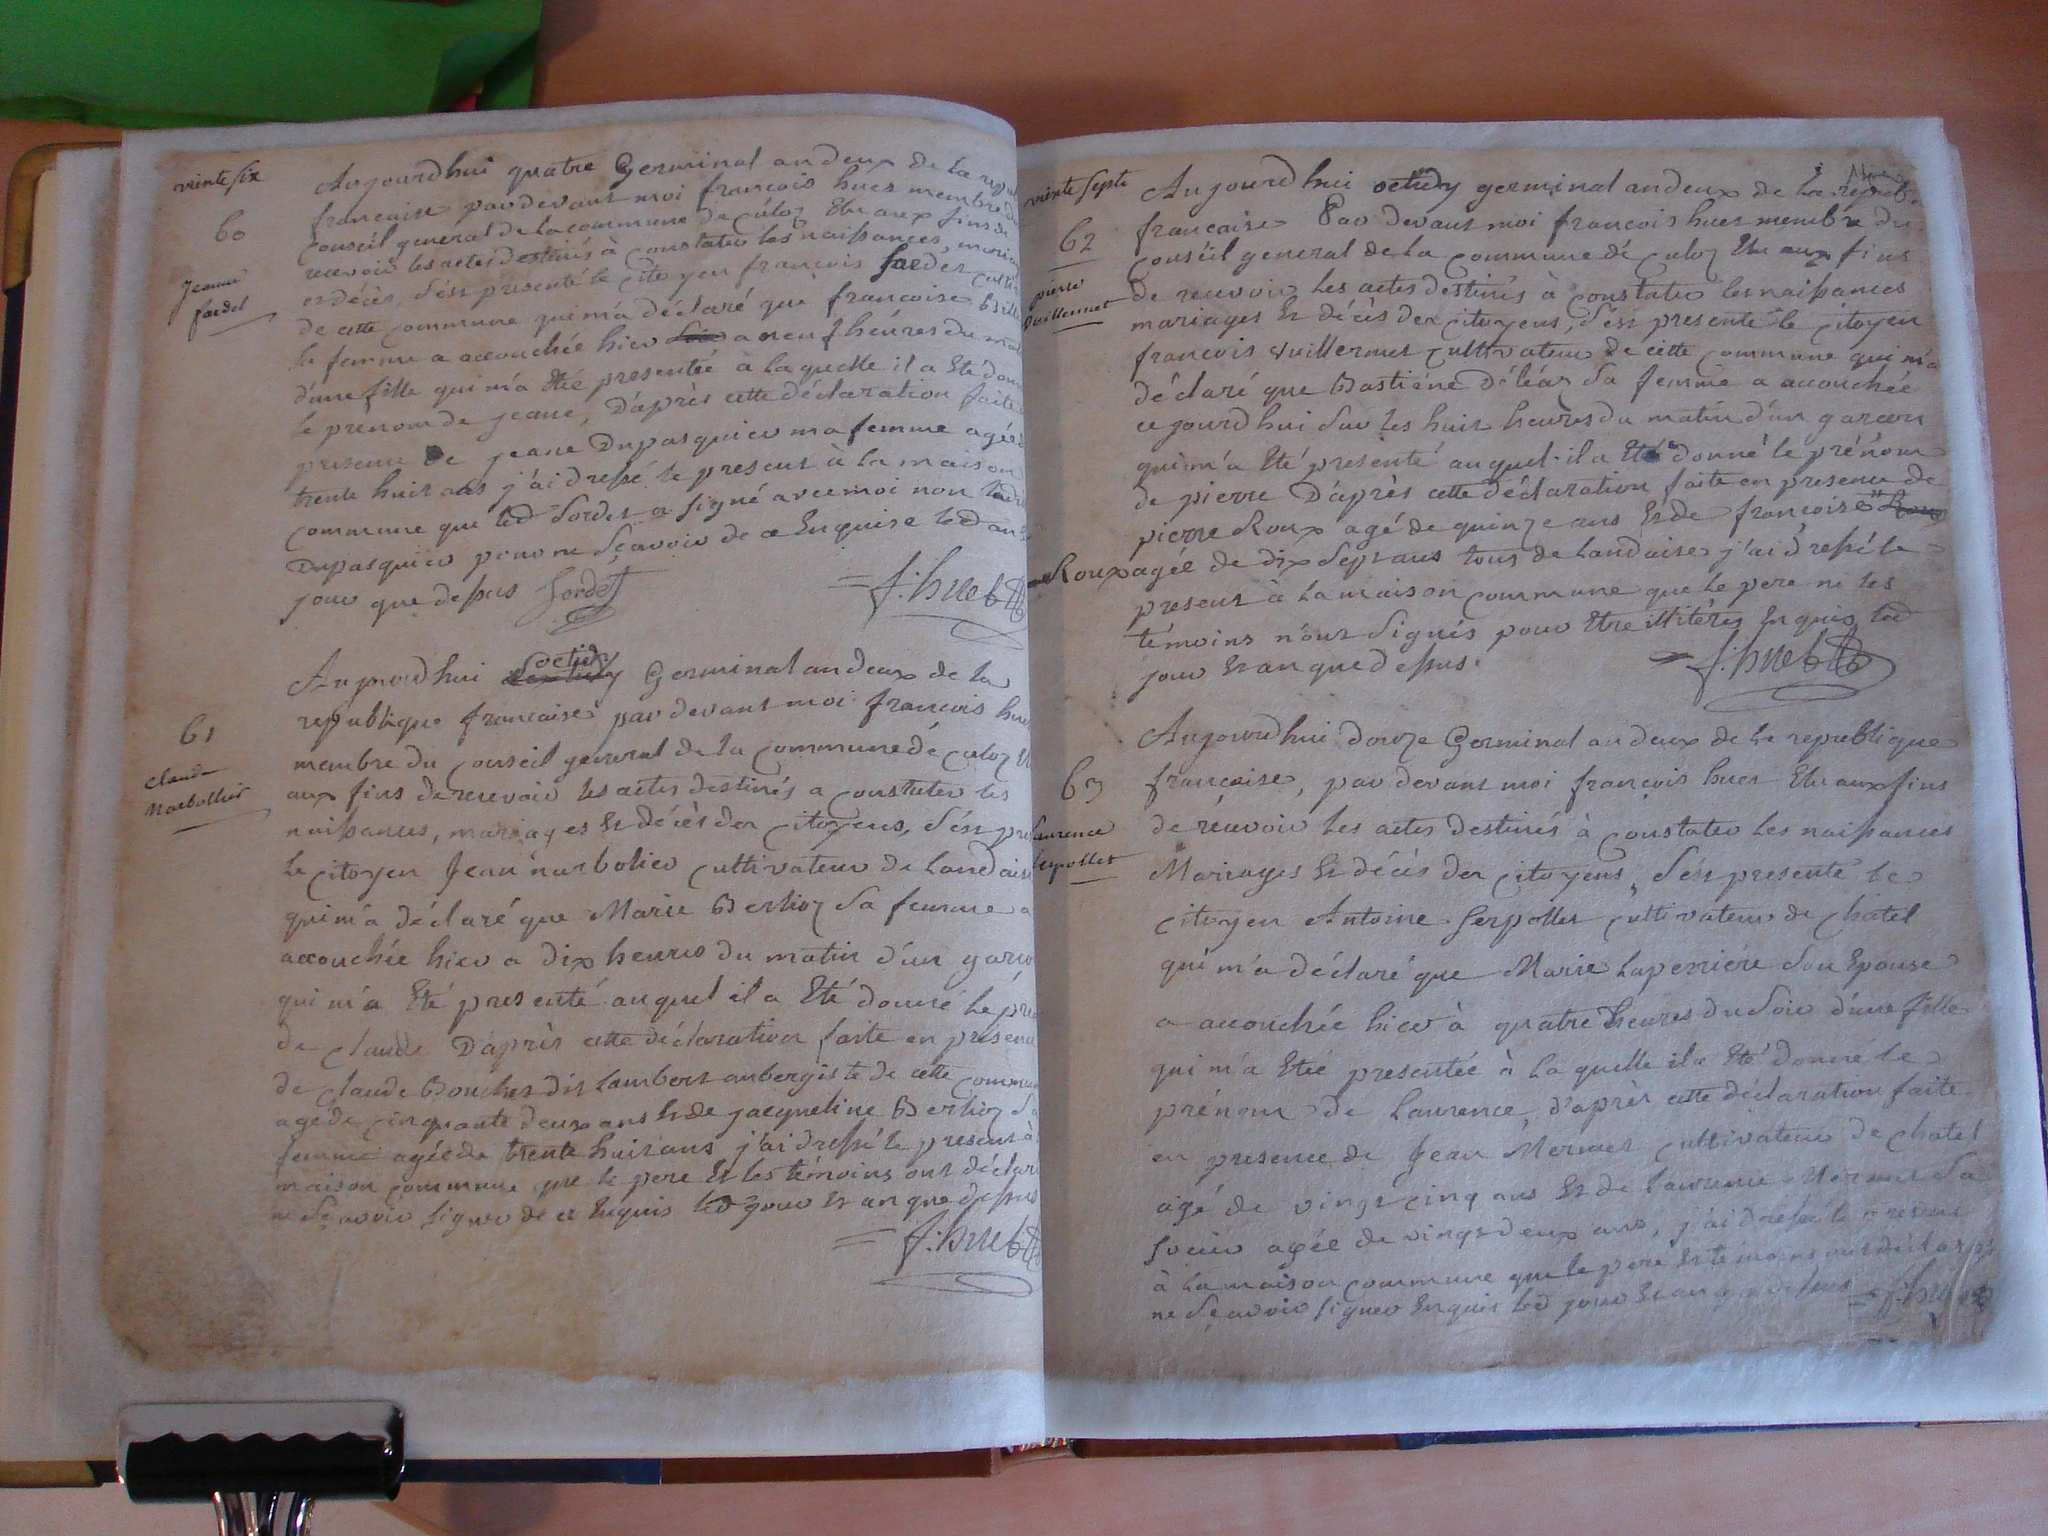 vinte six
Aujourdhui quatre Germinal an deux de la repu
60
francaise pardevant moi francois hues membre du
conseil general de la commune de culoz Elu aux fins de
recevoir les actes destinés à constater les naissances, maria
Jeanne
fardel
et décès, s'est presenté le citoyen francois
de cette commune qui m'a déclaré que francoise
femme a accouchée hier a neuf heures du mat
d'une fille qui m'a été presentée à laquelle il a Eté don
le prenom de jeane, D'après cette déclaration faite
presence De jeane Dupasquier ma femme agée d
trente huit ans j'ai dressé le present à la maison
commune que led Sordet a signé avec moi non lad
Dupasquier pour ne sçavoir de ce Enquise led an
jour que dessus Sordet
= f. huet
Aujourdhui octidy Germinal an deux de la
republique francaise par devant moi francois hue
61
membre du conseil general de la commune de culoz El
claude
Narbollier
aux fins de recevoir les actes destinés a constater les
naissances, mariages Et décès des citoyens, s'est pre
le citoyen Jean narbolier cultivateur de Landaise
qui m'a déclaré que Marie Berlioz sa femme a
accouchée hier a dix heures du matin d'un garco
qui m'a Eté presenté auquel il a Eté donné le pré
de claude D'après cette déclaration faite en presence
de claude Bouchet dit Lambert aubergiste de cette commun
agé de cinquante deux ans Et de jacqueline Berlioz sa
femme agée de trente huit ans j'ai dressé le present à
maison commune que le pere Et les témoins ont déclaré
ne sçavoir signer de ce Enquis led jour Et an que dessus
= f. huet
vinte septe
Aujourdhui octidy germinal an deux de la republ
62
francaise Par devant moi francois hues membre du
conseil general de la commune de culoz Elu aux fins
pierre
Vuillermet
de recevoir les actes destinés à constater les naissances
mariages Et décès des citoyens, s'est presenté le citoyen
francois vuillermet cultivateur de cette commune qui m'a
déclaré que Bastiéne Déléaz sa femme a accouchée
ce jourdhui sur les huit heures du matin d'un garcon
qui m'a Eté presenté auquel il a Eté donné le prénom
de pierre D'après cette déclaration faite en presence de
pierre Roux agé de quinze ans Et de francoise Roux
Roux agée de dix sept ans tous de Landaise j'ai dressé le
present à la maison commune que le pere ni les
témoins n'ont signés pour Etre illitérés Enquis led
jour Et an que dessus.
= f. huet
Aujourdhui douze Germinal an deux de la republique
63
francaise, par devant moi francois hues Elu aux fins
de recevoir les actes destinés à constater les naissances
Laurence
Serpollet
Mariages Et décès des citoyens, s'est presenté le
citoyen Antoine Serpollet cultivateur de chatel
qui m'a déclaré que Marie Laperriere son Epouse
a accouchée hier à quatre heures du soir d'une fille
qui m'a Etée presentée à laquelle il a Eté donné le
prénom de Laurence, d'après cette déclaration faite
en presence de Jean Mermet cultivateur de chatel
agé de vingt cinq ans Et de Laurence Mermet sa
soeur agée de vingt deux ans, j'ai dressé le present
à la maison commune que le pere Et témoins ont déclaré
ne sçavoir signer Enquis led jour Et an que dessus = f. huet